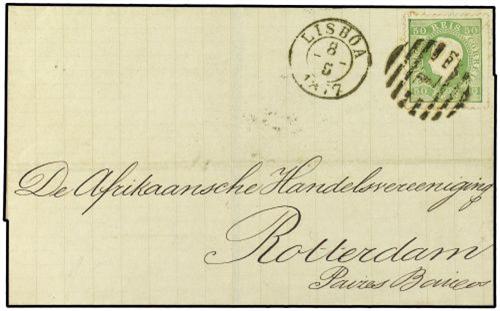 LISBOA
8
6
1877
50 REIS 50
CORREIO
De Afrikaansche Handelsvereeniging
Rotterdam
Paizes Baixos